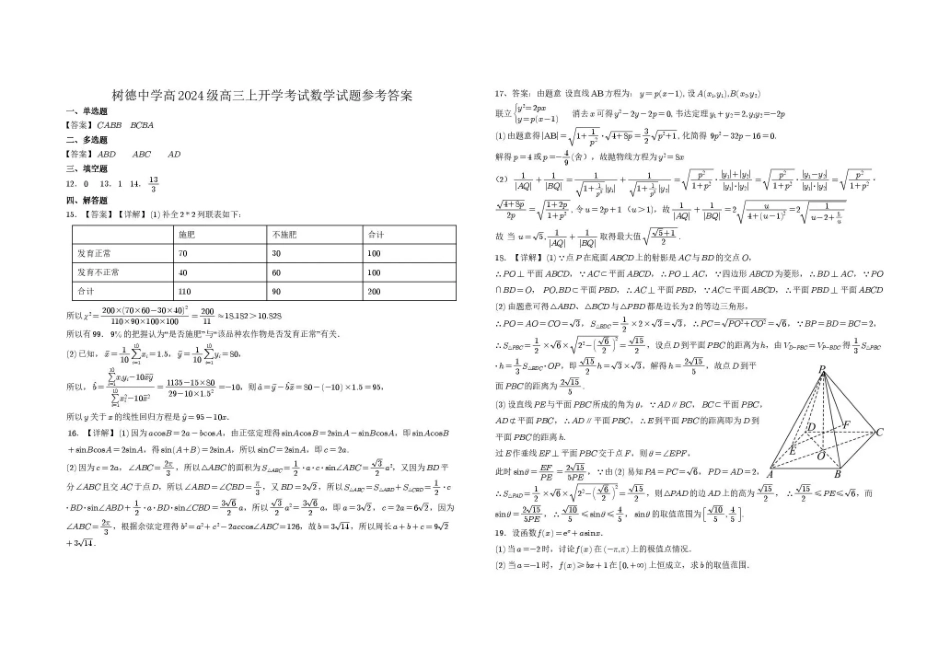 树德中学高2024级高三上开学考试数学试题参考答案
一、单选题
【答案】CABB BCBA
二、多选题
【答案】ABD ABC AD
三、填空题
12. 0 13. 1 14. 13/3
四、解答题
15. 【答案】【详解】(1)补全2*2列联表如下:
施肥 不施肥 合计
发育正常 70 30 100
发育不正常 40 60 100
合计 110 90 200
所以χ²=200×(70×60−30×40)²/110×90×100×100=200/11≈18.182>10.828
所以有99. 9%的把握认为“是否施肥”与“该品种农作物是否发育正常”有关.
(2)已知, x̄=1/10 ∑xᵢ=1.5, ȳ=1/10 ∑yᵢ=80,
所以, b̂=(∑xᵢyᵢ−10x̄ȳ)/(∑xᵢ²−10x̄²)=(1135−15×80)/(29−10×1.5²)=−10, 则â=ȳ−b̂x̄=80−(−10)×1.5=95,
所以y关于x的线性回归方程是ŷ=95−10x.
16. 【详解】(1)因为acosB=2a−bcosA, 由正弦定理得sinAcosB=2sinA−sinBcosA, 即sinAcosB
+sinBcosA=2sinA, 得sin(A+B)=2sinA, 所以sinC=2sinA, 即c=2a.
(2)因为c=2a, ∠ABC=2π/3, 所以△ABC的面积为S△ABC=1/2·a·c·sin∠ABC=√3/2 a², 又因为BD平
分∠ABC且交AC于点D, 所以∠ABD=∠CBD=π/3, 又BD=2√2, 所以S△ABC=S△ABD+S△CBD=1/2·c
·BD·sin∠ABD+1/2·a·BD·sin∠CBD=3√6/2 a, 所以√3/2 a²=3√6/2 a, 即a=3√2, c=2a=6√2, 因为
∠ABC=2π/3, 根据余弦定理得b²=a²+c²−2accos∠ABC=126, 故b=3√14, 所以周长a+b+c=9√2
+3√14.
17、答案: 由题意 设直线AB方程为: y=p(x−1), 设A(x₁,y₁),B(x₂,y₂)
联立{y²=2px y=p(x−1) 消去x可得y²−2y−2p=0, 韦达定理y₁+y₂=2,y₁y₂=−2p
(1)由题意得|AB|=√(1+1/p²)·√(4+8p)=3/2 √(p²+1), 化简得 9p²−32p−16=0.
解得p=4或p=−4/9(舍), 故抛物线方程为y²=8x
(2) 1/|AQ|+1/|BQ|=1/(√(1+1/p²)|y₁|)+1/(√(1+1/p²)|y₂|)=√(p²/(1+p²))·(|y₁|+|y₂|)/(|y₁|·|y₂|)=√(p²/(1+p²))·|y₁−y₂|/(|y₁|·|y₂|)=√(p²/(1+p²))·
√(4+8p)/2p=√((1+2p)/(1+p²)). 令u=2p+1 (u>1), 故1/|AQ|+1/|BQ|=2√(u/(4+(u−1)²))=2√(1/(u−2+5/u))
故 当u=√5, 1/|AQ|+1/|BQ|取得最大值√((√5+1)/2).
18. 【详解】(1)∵点P在底面ABCD上的射影是AC与BD的交点O,
∴PO⊥平面ABCD, ∵AC⊂平面ABCD, ∴PO⊥AC, ∵四边形ABCD为菱形, ∴BD⊥AC, ∵PO
∩BD=O, PO,BD⊂平面PBD, ∴AC⊥平面PBD, ∵AC⊂平面ABCD, ∴平面PBD⊥平面ABCD
(2)由题意可得△ABD、△BCD与△PBD都是边长为2的等边三角形,
∴PO=AO=CO=√3, S△BDC=1/2×2×√3=√3, ∴PC=√(PO²+CO²)=√6, ∵BP=BD=BC=2,
∴S△PBC=1/2×√6×√(2²−(√6/2)²)=√15/2, 设点D到平面PBC的距离为h, 由V D−PBC=V P−BDC得1/3 S△PBC
·h=1/3 S△BDC·OP, 即√15/2 h=√3×√3, 解得h=2√15/5, 故点D到平
面PBC的距离为2√15/5.
(3)设直线PE与平面PBC所成的角为θ, ∵AD∥BC, BC⊂平面PBC,
AD⊄平面PBC, ∴AD∥平面PBC, ∴E到平面PBC的距离即为D到
平面PBC的距离h.
过E作垂线EF⊥平面PBC交于点F, 则θ=∠EPF,
此时sinθ=EF/PE=2√15/5PE, ∵由(2)易知PA=PC=√6, PD=AD=2,
∴S△PAD=1/2×√6×√(2²−(√6/2)²)=√15/2, 则△PAD的边AD上的高为√15/2, ∴√15/2≤PE≤√6, 而
sinθ=2√15/5PE, ∴√10/5≤sinθ≤4/5, sinθ的取值范围为[√10/5,4/5].
P
D
F
C
E
O
A
B
19. 设函数f(x)=eˣ+asinx.
(1)当a=−2时, 讨论f(x)在(−π,π)上的极值点情况.
(2)当a=−1时, f(x)≥bx+1在[0,+∞)上恒成立, 求b的取值范围.